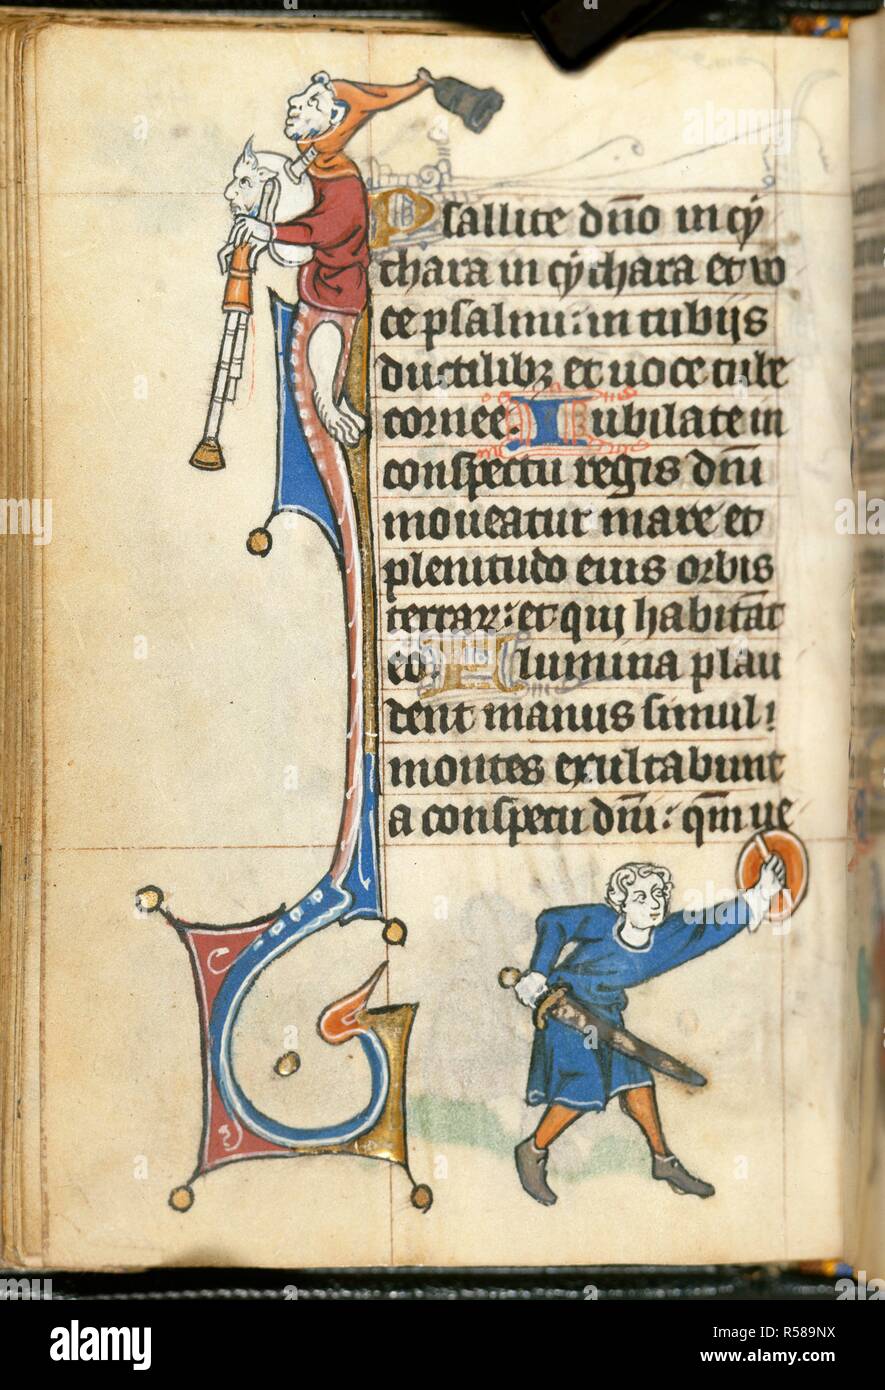 Psallite dño in cy
thara in cythara et uo
ce psalmi: in tubijs
ductilibꝫ et uoce tube
cornee. Iubilate in
conspectu regis dñi
moueatur mare et
plenitudo eius orbis
terrarꝫ: et qui habitāt
eo. Flumina plau
dent manus simul:
montes exultabunt
a conspectu dñi: qm̄ ue
alamy
alamy
Image ID: R589NX
www.alamy.com